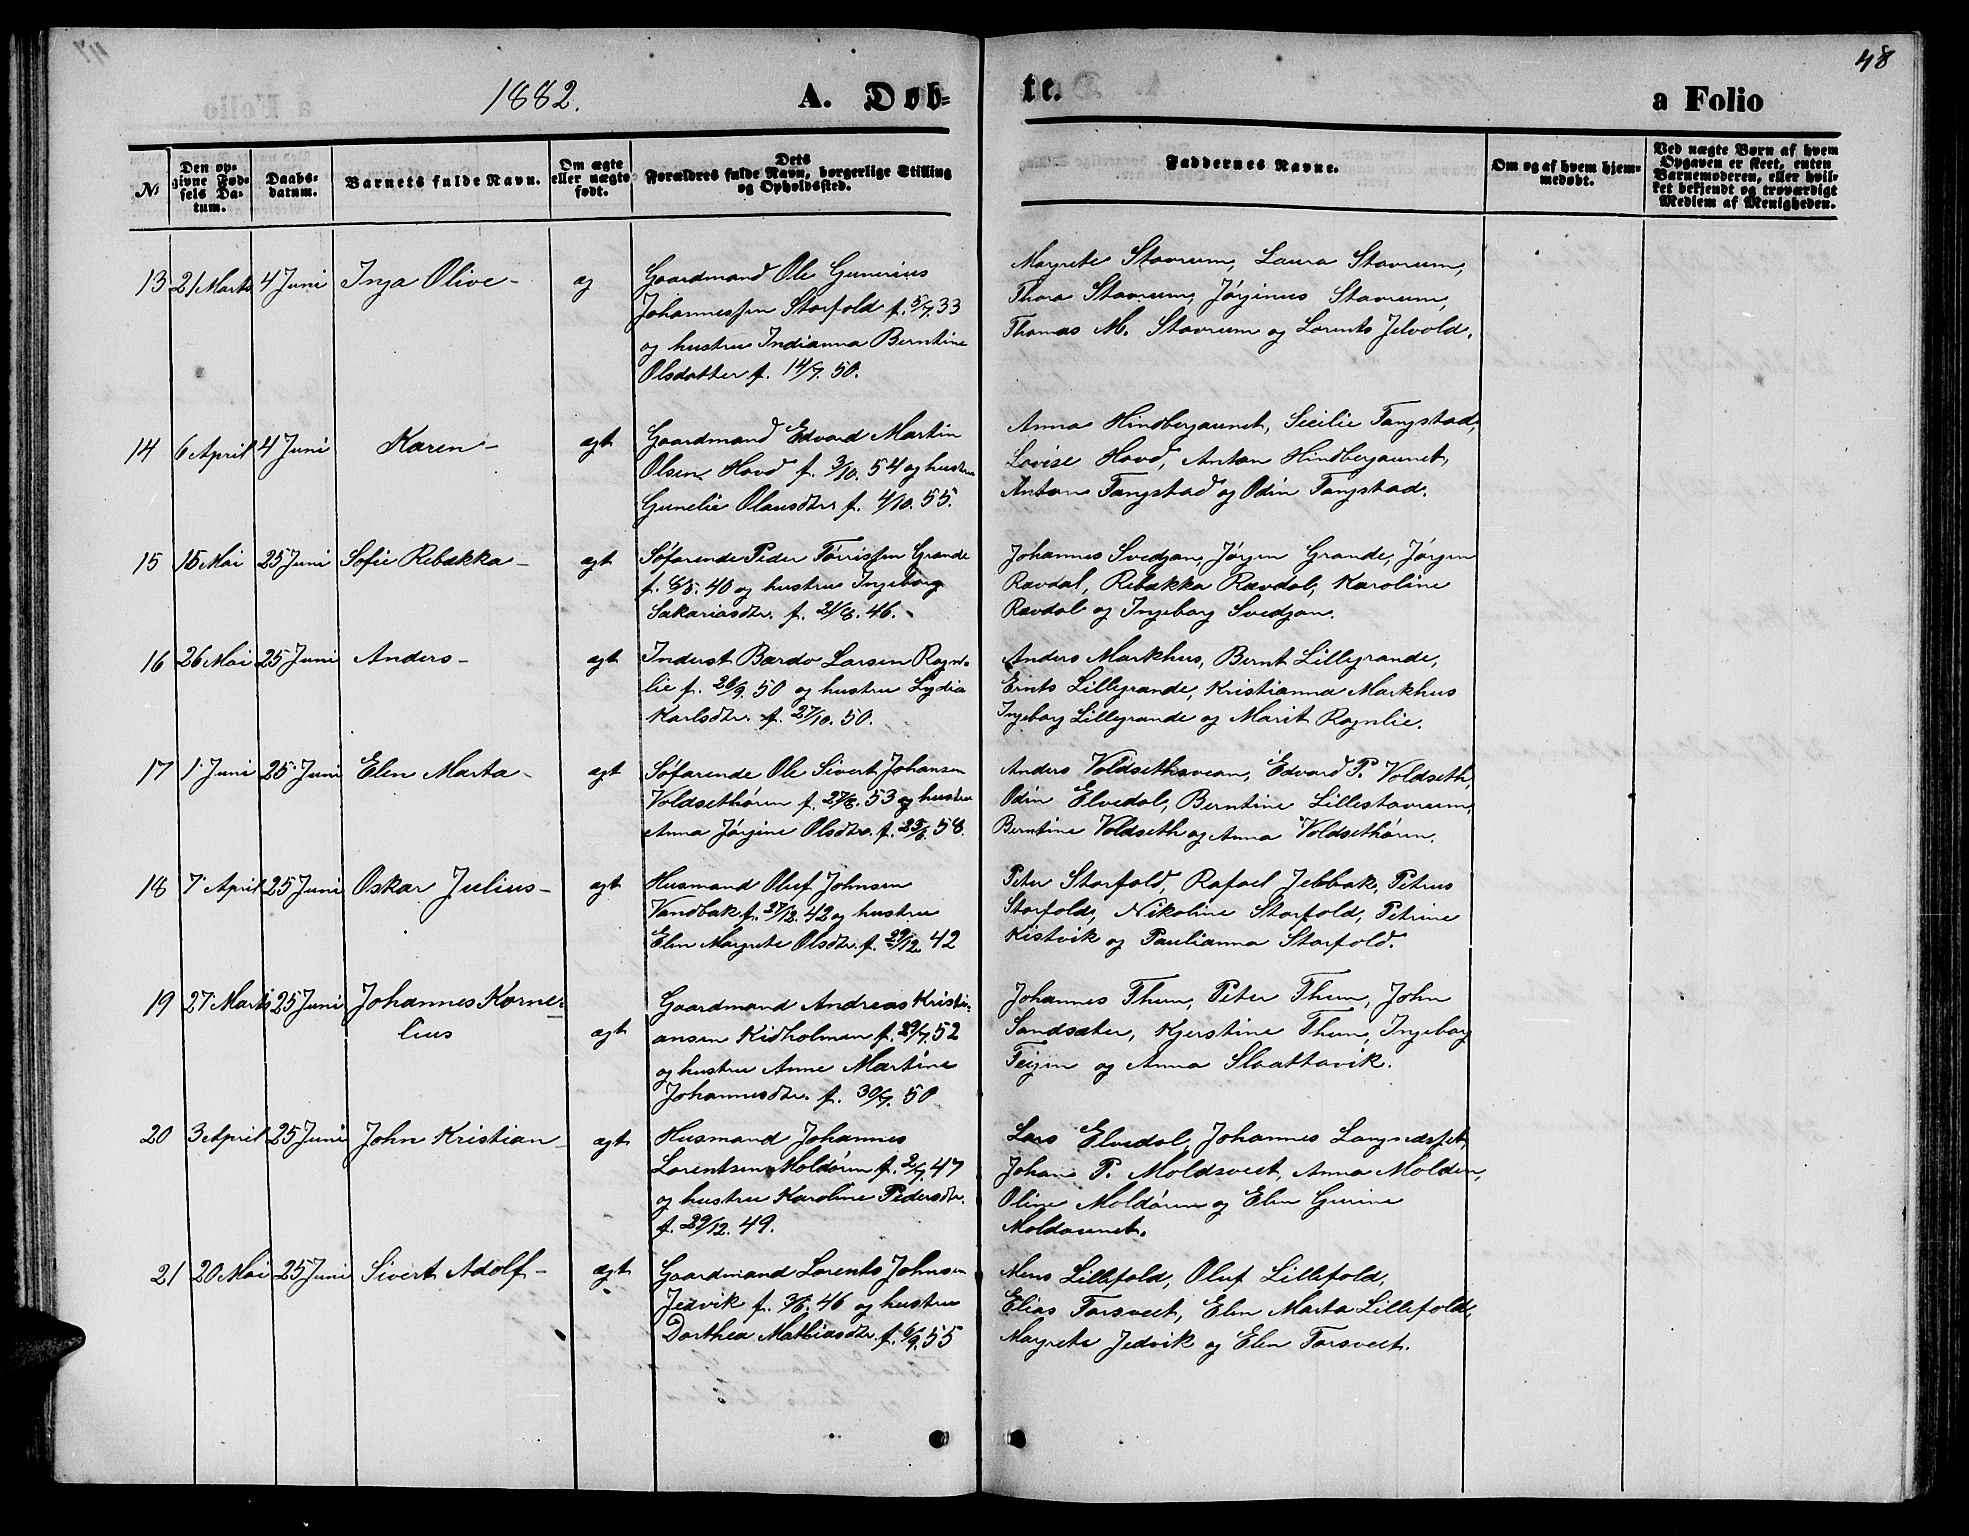 48
1882.
A. Døb-
te.
a Folio
№
Den op-
givne Fød-
sels Da-
tum.
Daabs-
datum.
Barnets fulde Navn.
Om ægte
eller uægte
født.
Dets
Forældres fulde Navn, borgerlige Stilling
og Opholdssted.
Faddernes Navne.
Om og af hvem hjem-
medøbt.
Ved uægte Børn af hvem
Opgaven er skeet, enten
Barnemoderen, eller hvil-
ket bekjendt og troværdigt
Medlem af Menigheden.
13 21 Marts 4 Juni Inga Olive- æg
Gaardmand Ole Gunerius
Johannessen Storfold f. 5/7. 33
og hustru Indianna Berntine
Olsdatter f. 14/7. 50.
Margrete Stavrum, Laura Stavrum,
Thora Stavrum, Jørginus Stavrum,
Thomas M. Stavrum og Lorents Jelvold.
14 6 April 4 Juni Karen- ægt
Gaardmand Edvard Martin
Olsen Hovd f. 3/10. 54 og hustru
Gunelie Olausdtr. f. 4/10. 55.
Anna Hindbergaunet, Sicilie Tangstad,
Lovise Hovd, Anton Hindbergaunet,
Anton Tangstad og Odin Tangstad.
15 15 Mai 25 Juni Sofie Rebækka- ægt
Søfarende Peder Tørrissen Grande
f. 6/5. 40 og hustru Ingeborg
Sakariasdtr. f. 21/8. 46.
Johannes Svedjan, Jørgen Grande, Jørgen
Rævdal, Rebækka Rævdal, Karoline
Rævdal og Ingeborg Svedjan.
16 26 Mai 25 Juni Anders- ægt
Inderst Bardo Larsen Rogn-
lie f. 26/9. 50 og hustru Lydia
Karlsdtr. f. 27/10. 50.
Anders Markhus, Bernt Lillegrande,
Ernts Lillegrande, Kristianna Markhus
Ingeborg Lillegrande og Marit Rognlie.
17 1 Juni 25 Juni Elen Marta- ægt
Søfarende Ole Sivert Johansen
Voldsethøren f. 27/8. 53 og hustru
Anna Jørgine Olsdtr. f. 23/6. 58.
Anders Voldsethaveian, Edvard P. Voldseth,
Odin Elvedal, Berntine Lillestavrum,
Berntine Voldseth og Anna Voldsethøren.
18 7 April 25 Juni Oskar Julius- ægt
Husmand Oluf Johnsen
Vandbak f. 27/12. 42 og hustru
Elen Margrete Olsdtr. f. 29/12. 42
Peter Storfold, Rafael Jebbak, Petrus
Storfold, Nikoline Storfold, Petrine
Kistvik og Paulianna Storfold.
19 27 Marts 25 Juni Johannes Korne-
lius
ægt
Gaardmand Andreas Kristi-
ansen Kidholman f. 29/7. 52
og hustru Anne Martine
Johannesdtr. f. 30/7. 50
Johannes Thun, Peter Thun, John
Sandsæter, Kjerstine Thun, Ingeborg
Teigen og Anna Slaattavik.
20 3 April 25 Juni John Kristian- ægt
Husmand Johannes
Lorentsen Moldøren f. 2/7. 47
og hustru Karoline Pedersdtr.
f. 29/12. 49.
Lars Elvedal, Johannes
Johan P. Moldsveet, Anna Molden,
Oline Moldøren og Elen Gurine
Moldaunet.
21 20 Mai 25 Juni Sivert Adolf- ægt
Gaardmand Lorents Johnsen
Jedvik f. 3/6. 46 og hustru
Dorthea Mathiasdtr. f. 6/9. 55
Mens Lillefold, Oluf Lillefold,
Elias Torsveet, Elen Marta Lillefold,
Margrete Jedvik og Elen Torsveet.